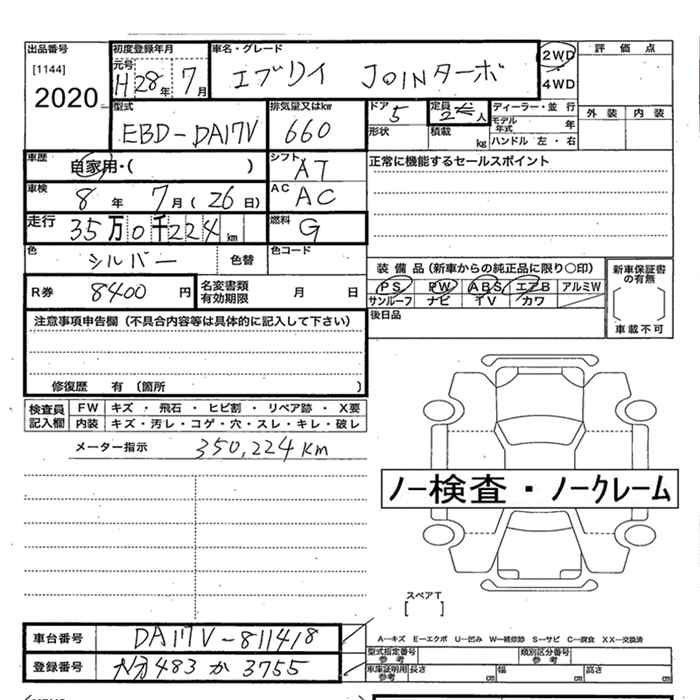 出品番号 初度登録年月 車名・グレード 評価点
[1144] 元号 H 28年 7月 エブリイ JOINターボ 2WD
2020 4WD
型式 排気量又はkw ドア 定員 ディーラー・並行 外装 内装
EBD-DA17V 660 5 人 モデル年式 年
形状 積載 kg ハンドル 左・右
車歴 自家用・( ) シフト AT 正常に機能するセールスポイント
車検 8年 7月(26日) AC AC
走行 35万0千224km 燃料 G
色 シルバー 色替 色コード
装備品(新車からの純正品に限り○印) 新車保証書の有無
R券 8400円 名変書類有効期限 月 日 PS PW ABS エアB アルミW
サンルーフ ナビ TV カワ 車載不可
注意事項申告欄(不具合内容等は具体的に記入して下さい) 後日品
修復歴 有 〔箇所 〕
検査員記入欄 FW キズ・飛石・ヒビ割・リペア跡・X要
内装 キズ・汚レ・コゲ・穴・スレ・キレ・破レ
メーター指示 350,224km
ノー検査・ノークレーム
スペアT
[ ]
車台番号 DA17V-811418 A―キズ E―エクボ U―凹み W―補修跡 S―サビ C―腐食 XX―交換済
型式指定番号 参考 類別区分番号 参考
登録番号 483 か 3755 車庫証明用 参考 長さ cm 幅 cm 高さ cm